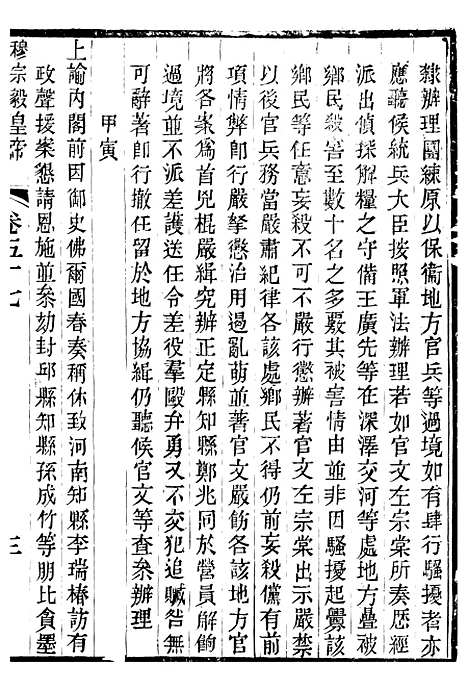 隸辦理團練原以保衞地方官兵等過境如有肆行騷擾者亦
應聽侯統兵大臣按照軍法辦理若如官文左宗棠所奏歷經
派出偵探解糧之守備王廣先等在深澤交河等處地方疊被
鄉民殺害至數十名之多覈其被害情由並非因騷擾起釁該
鄉民等任意妄殺不可不嚴行懲辦著官文左宗棠出示嚴禁
以後官兵務當嚴肅紀律各該處鄉民不得仍前妄殺如有前
項情弊卽行嚴拏懲治用遏亂萌並著官文嚴飭各該地方官
將各案爲首兇棍嚴緝究辦正定縣知縣鄭兆同於營員解餉
過境並不派差護送任令差役羣毆弁勇又不交犯追贓咎無
可辭著卽行撤任留於地方協緝仍聽候官文等查叅辦理
甲寅
上諭內閣前因御史佛爾國春奏稱休致河南知縣李瑞椿訪有
政聲援案懇請恩施並叅劾封邱縣知縣孫成竹等朋比貪墨
穆宗毅皇帝 卷五十七 三